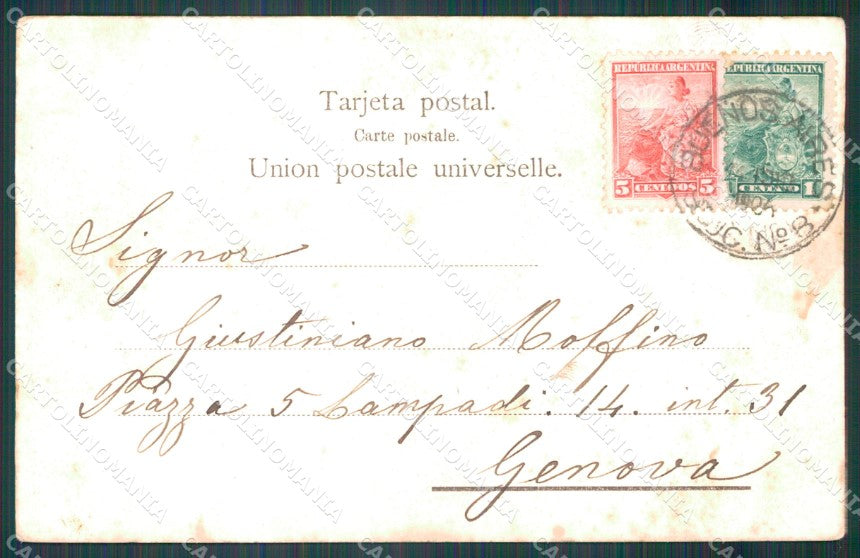 REPUBLICA ARGENTINA
5 CENTAVOS 5
REPUBLICA ARGENTINA
CENTAVO 1
BUENOS AIRES
SUC. Nº 8
Tarjeta postal.
Carte postale.
Union postale universelle.
Signor
Giustiniano Moffino
Piazza 5 Lampadi. 14. int. 31
Genova
CARTOLINOMANIA